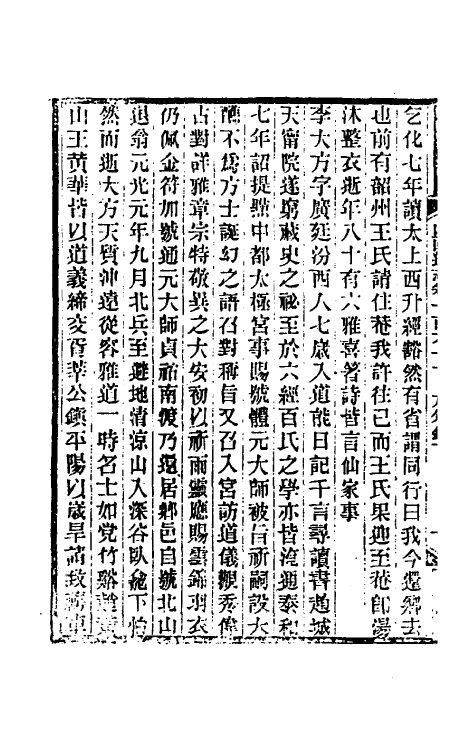 乞化七年讀太上西升經豁然有省謂同行曰我今還鄉去
也前有韶州王氏請住菴我許往已而王氏果迎至菴即湯
沐整衣逝年八十有六雅喜著詩皆言仙家事
李大方字廣延汾西人七歲入道能日記千言尋讀書通城
天甯院遂窮藏史之祕至於六經百氏之學亦皆淹通泰和
七年詔提點中都太極宮事賜號體元大師被旨祈嗣設大
醮不爲方士誕幻之語召對稱旨又召入宮訪道儀觀秀偉
占對詳雅章宗特敬異之大安初以祈雨靈應賜雲錦羽衣
仍佩金符加號通元大師貞祐南渡乃還居鄉邑自號北山
退翁元光元年九月北兵至避地清涼山入深谷臥絶下怡
然而逝大方天質沖遠從容雅道一時名士如党竹谿
山王黄華皆以道義締交胥莘公鎮平陽以歲旱請致